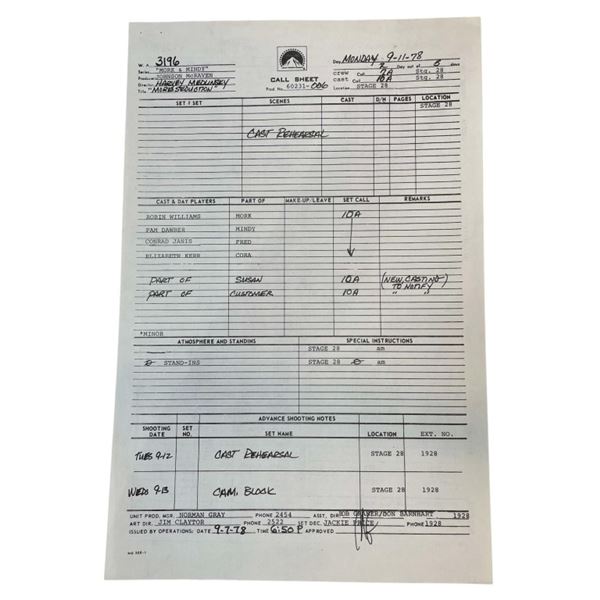 W. A. 3196
Day MONDAY 9-11-78
Series "MORK & MINDY"
Day out of 5 days
Producer JOHNSON McRAVEN
CALL SHEET
crew Call 9A Stg. 28
Director HARVEY MEDLINSKY
Prod No. 60231-006
cast Call 10A Stg. 28
Title "MORK'S SEDUCTION"
Location STAGE 28
SET / SET SCENES CAST D/N PAGES LOCATION
STAGE 28
CAST REHEARSAL
CAST & DAY PLAYERS PART OF MAKE-UP/LEAVE SET CALL REMARKS
ROBIN WILLIAMS MORK 10A
PAM DAWBER MINDY
CONRAD JANIS FRED
ELIZABETH KERR CORA
PART OF SUSAN 10A (NEW, CASTING
PART OF CUSTOMER 10A TO NOTIFY)
" "
*MINOR
ATMOSPHERE AND STANDINS SPECIAL INSTRUCTIONS
STAGE 28 am
STAND-INS STAGE 28 am
ADVANCE SHOOTING NOTES
SHOOTING DATE SET NO. SET NAME LOCATION EXT. NO.
TUES 9-12 CAST REHEARSAL STAGE 28 1928
WEDS 9-13 CAM. BLOCK STAGE 28 1928
UNIT PROD. MGR. NORMAN GRAY PHONE 2454 ASST. DIR. BOB /DON BARNHART 1928
ART DIR. JIM CLAYTOR PHONE 2522 SET DEC. JACKIE PRICE/ PHONE 1928
ISSUED BY OPERATIONS: DATE 9-7-78 TIME 6:50 P APPROVED